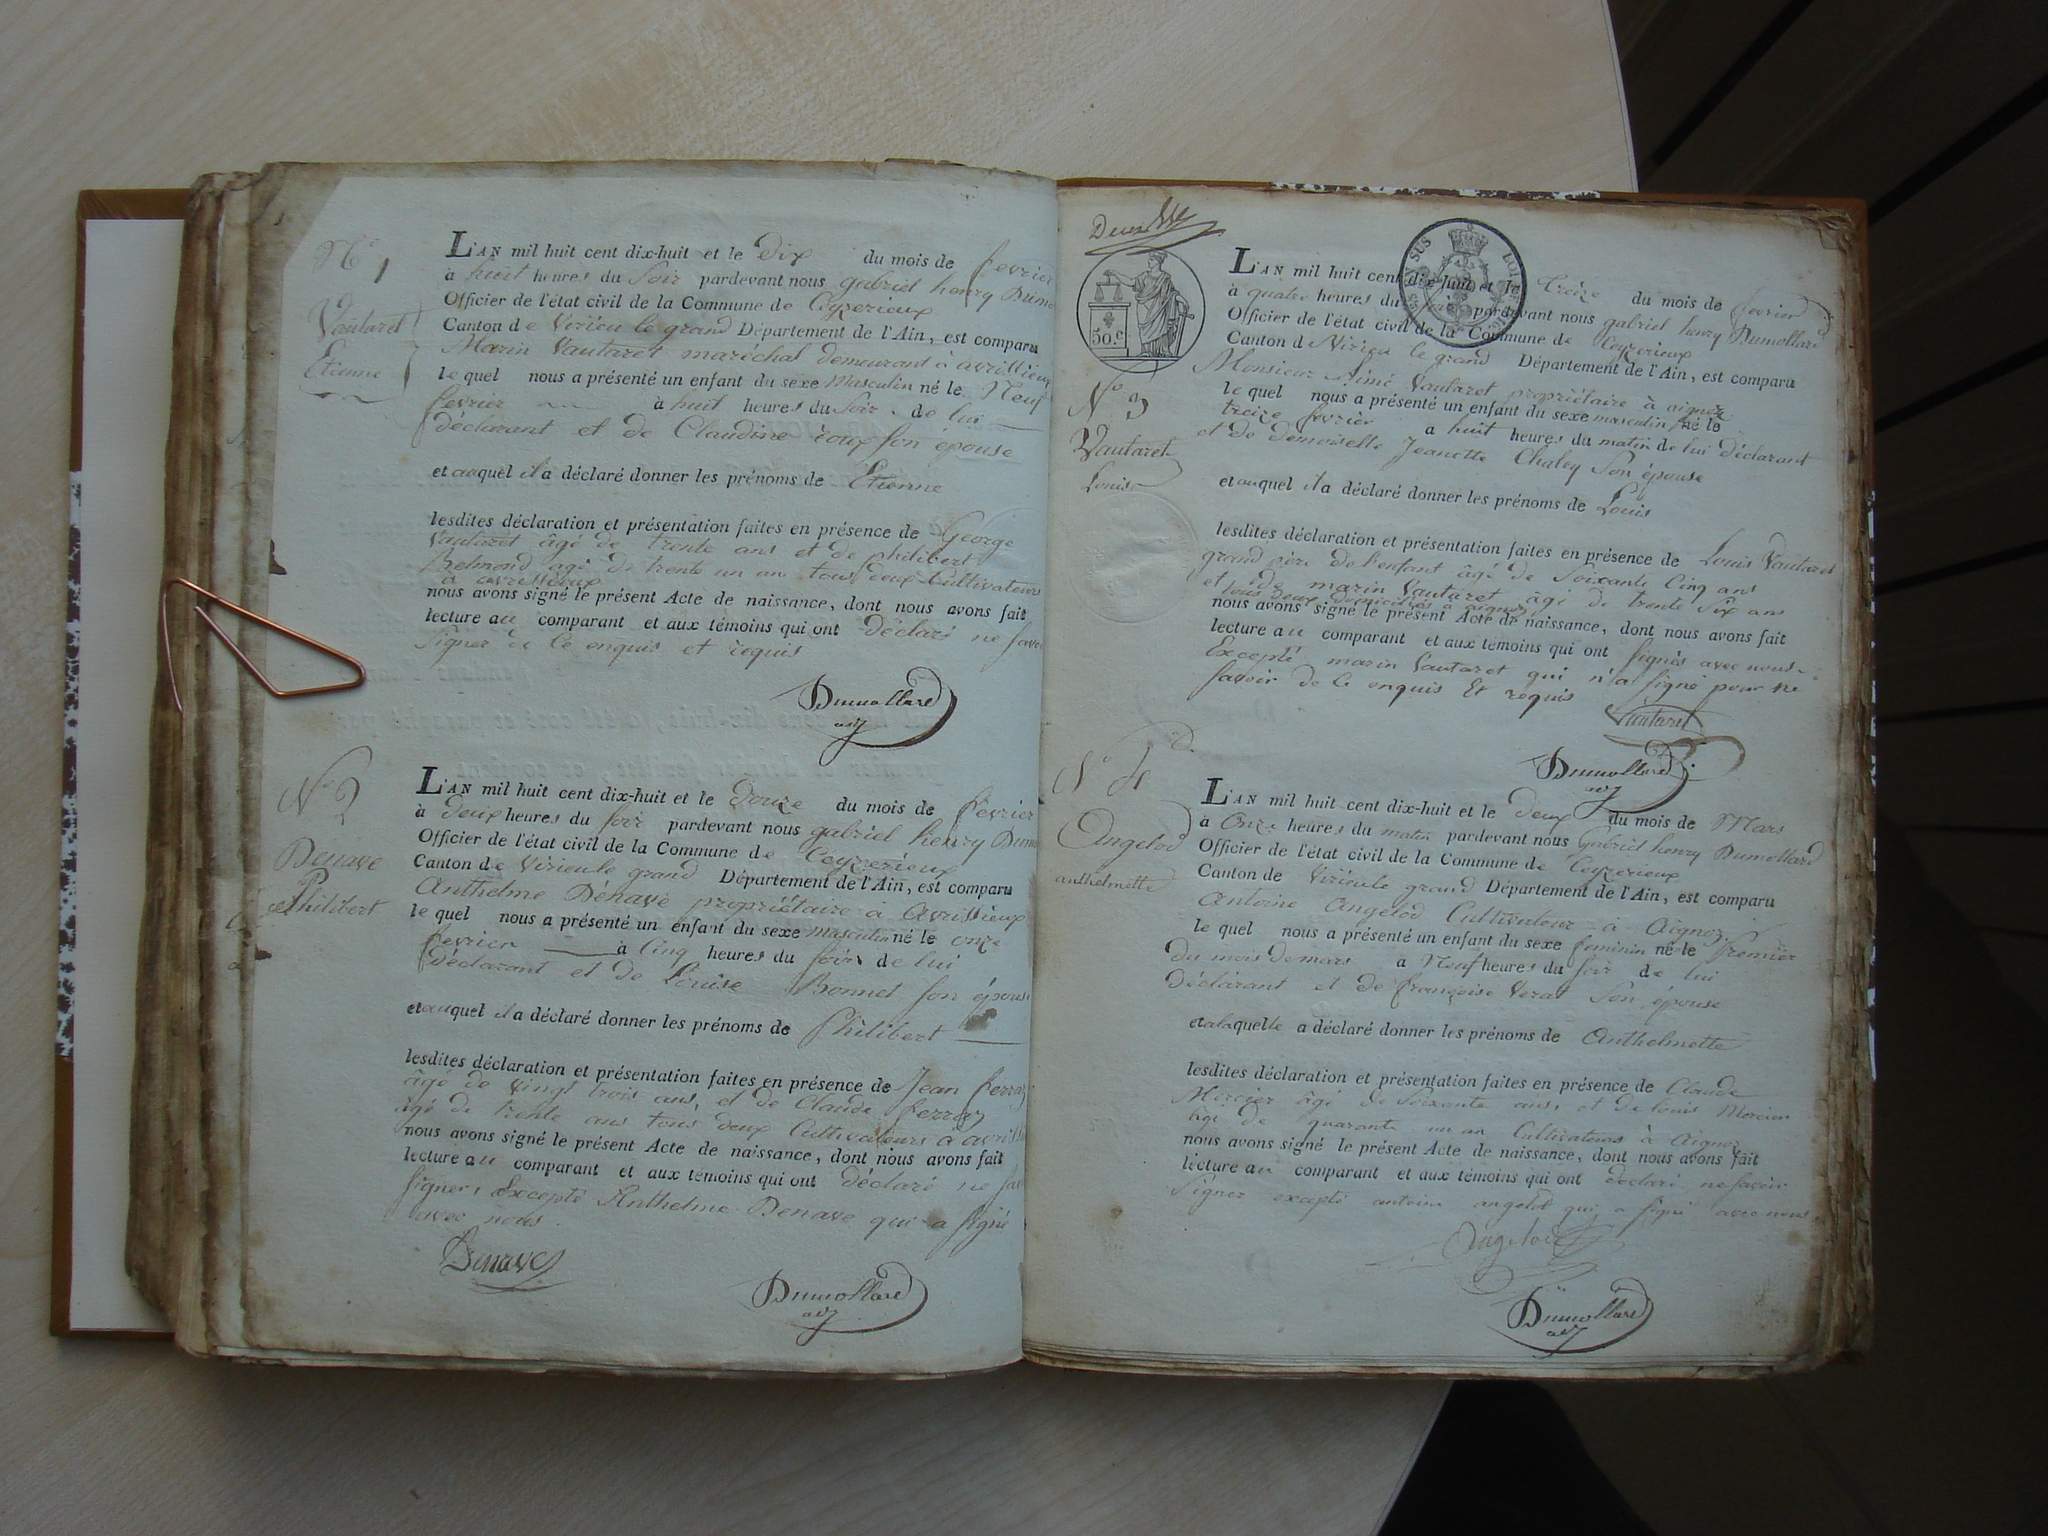 N.º 1
Vautaret
Etienne
L'AN mil huit cent dix-huit et le Dix du mois de fevrier
à huit heures du Soir pardevant nous gabriel henry Dumo
Officier de l'état civil de la Commune de Ceyzerieux
Canton de Virieu le grand Département de l'Ain, est comparu
Marin Vautaret maréchal demeurant à avrissieux
le quel nous a présenté un enfant du sexe Masculin né le Neuf
fevrier à huit heures du Soir de lui
déclarant et de Claudine roux son épouse
et auquel il a déclaré donner les prénoms de Etienne
lesdites déclaration et présentation faites en présence de George
Vautaret âgé de trente ans et de philibert
Belmond agé de trente un an tous deux Cultivateurs
à avrissieux
nous avons signé le présent Acte de naissance, dont nous avons fait
lecture au comparant et aux témoins qui ont Déclaré ne savoir
Signer de Ce enquis et requis
Dumollard
adj
N.º 2
Denave
Philibert
L'AN mil huit cent dix-huit et le Douze du mois de février
à Deux heures du soir pardevant nous gabriel henry Dumo
Officier de l'état civil de la Commune de Ceyzerieux
Canton de Virieu le grand Département de l'Ain, est comparu
Anthelme Dénave propriétaire à Avrissieux
le quel nous a présenté un enfant du sexe Masculin né le onze
fevrier à Cinq heures du soir de lui
Déclarant et de Louise Bonnet son épouse
et auquel il a déclaré donner les prénoms de Philibert
lesdites déclaration et présentation faites en présence de Jean ferraz
âgé de vingt trois ans, et de Claude ferraz
âgé de trente ans tous deux Cultivateurs à avriss
nous avons signé le présent Acte de naissance, dont nous avons fait
lecture au comparant et aux témoins qui ont déclaré ne sa
signer, Excepté Anthelme Denave qui a signé
avec nous.
Denave
Dumollard
adj
50.c
SUS
N.º 3
Vautaret
Louis
L'AN mil huit cent dix-huit et le treize du mois de fevrier
à quatre heures du soir pardevant nous gabriel henry Dumollard
Officier de l'état civil de la Commune de Ceyzerieux
Canton de Virieu le grand Département de l'Ain, est comparu
Monsieur Aimé Vautaret propriétaire à aignoz
le quel nous a présenté un enfant du sexe masculin né le
treize fevrier a huit heures du matin de lui déclarant
et de demoiselle Jeanette Chaley Son épouse
et auquel il a déclaré donner les prénoms de Louis
lesdites déclaration et présentation faites en présence de Louis Vautaret
grand père de l'enfant âgé de Soixante Cinq ans
et de marin Vautaret âgé de trente Six ans
tous deux domiciliés à aignoz
nous avons signé le présent Acte de naissance, dont nous avons fait
lecture au comparant et aux témoins qui ont signés avec nous
Excepté marin Vautaret qui n'a signé pour ne
savoir de Ce enquis Et requis
Vautaret
Dumollard
adj
N.º 4
Angelod
anthelmette
L'AN mil huit cent dix-huit et le Deux du mois de Mars
à Onze heures du matin pardevant nous Gabriel henry Dumollard
Officier de l'état civil de la Commune de Ceyzerieux
Canton de Virieu le grand Département de l'Ain, est comparu
Antoine Angelod Cultivateur à Aignoz
le quel nous a présenté un enfant du sexe feminin né le Premier
du mois de mars a Neuf heures du soir de lui
Déclarant et de françoise Verat Son épouse
et a laquelle a déclaré donner les prénoms de Anthelmette
lesdites déclaration et présentation faites en présence de Claude
Mercier âgé de Soixante ans, et de louis Mercier
âgé de quarante un an Cultivateurs à Aignoz
nous avons signé le présent Acte de naissance, dont nous avons fait
lecture au comparant et aux témoins qui ont déclaré ne savoir
Signer excepté antoine angelod qui a signé avec nous
Angelod
Dumollard
adj